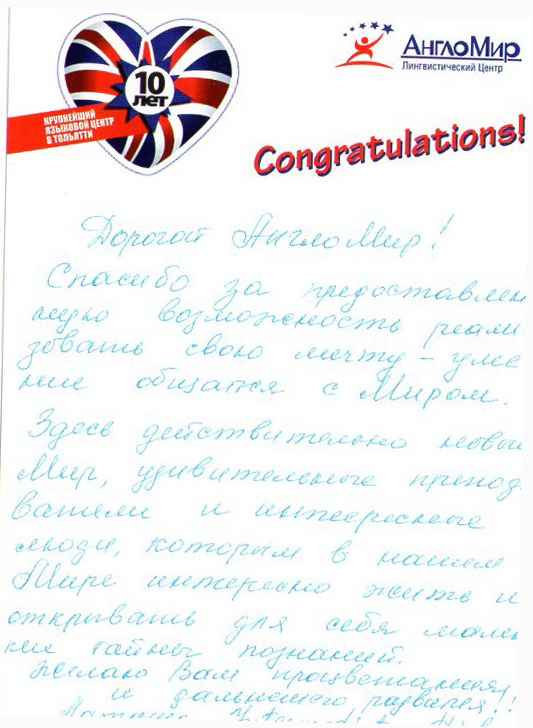 10
ЛЕТ
КРУПНЕЙШИЙ
ЯЗЫКОВОЙ ЦЕНТР
В ТОЛЬЯТТИ
АнглоМир
Лингвистический Центр
Congratulations!
Дорогой АнглоМир!
Спасибо за предоставлен
ную возможность реали
зовать свою мечту – уме
ние общатся с Миром.
Здесь действительно новый
Мир, удивительные препод
ватели и интересные
люди, которым в нашем
Мире интересно жить и
открывать для себя мален
кие тайны познаний.
Желаю Вам процветания
и дальнейшего развития!!